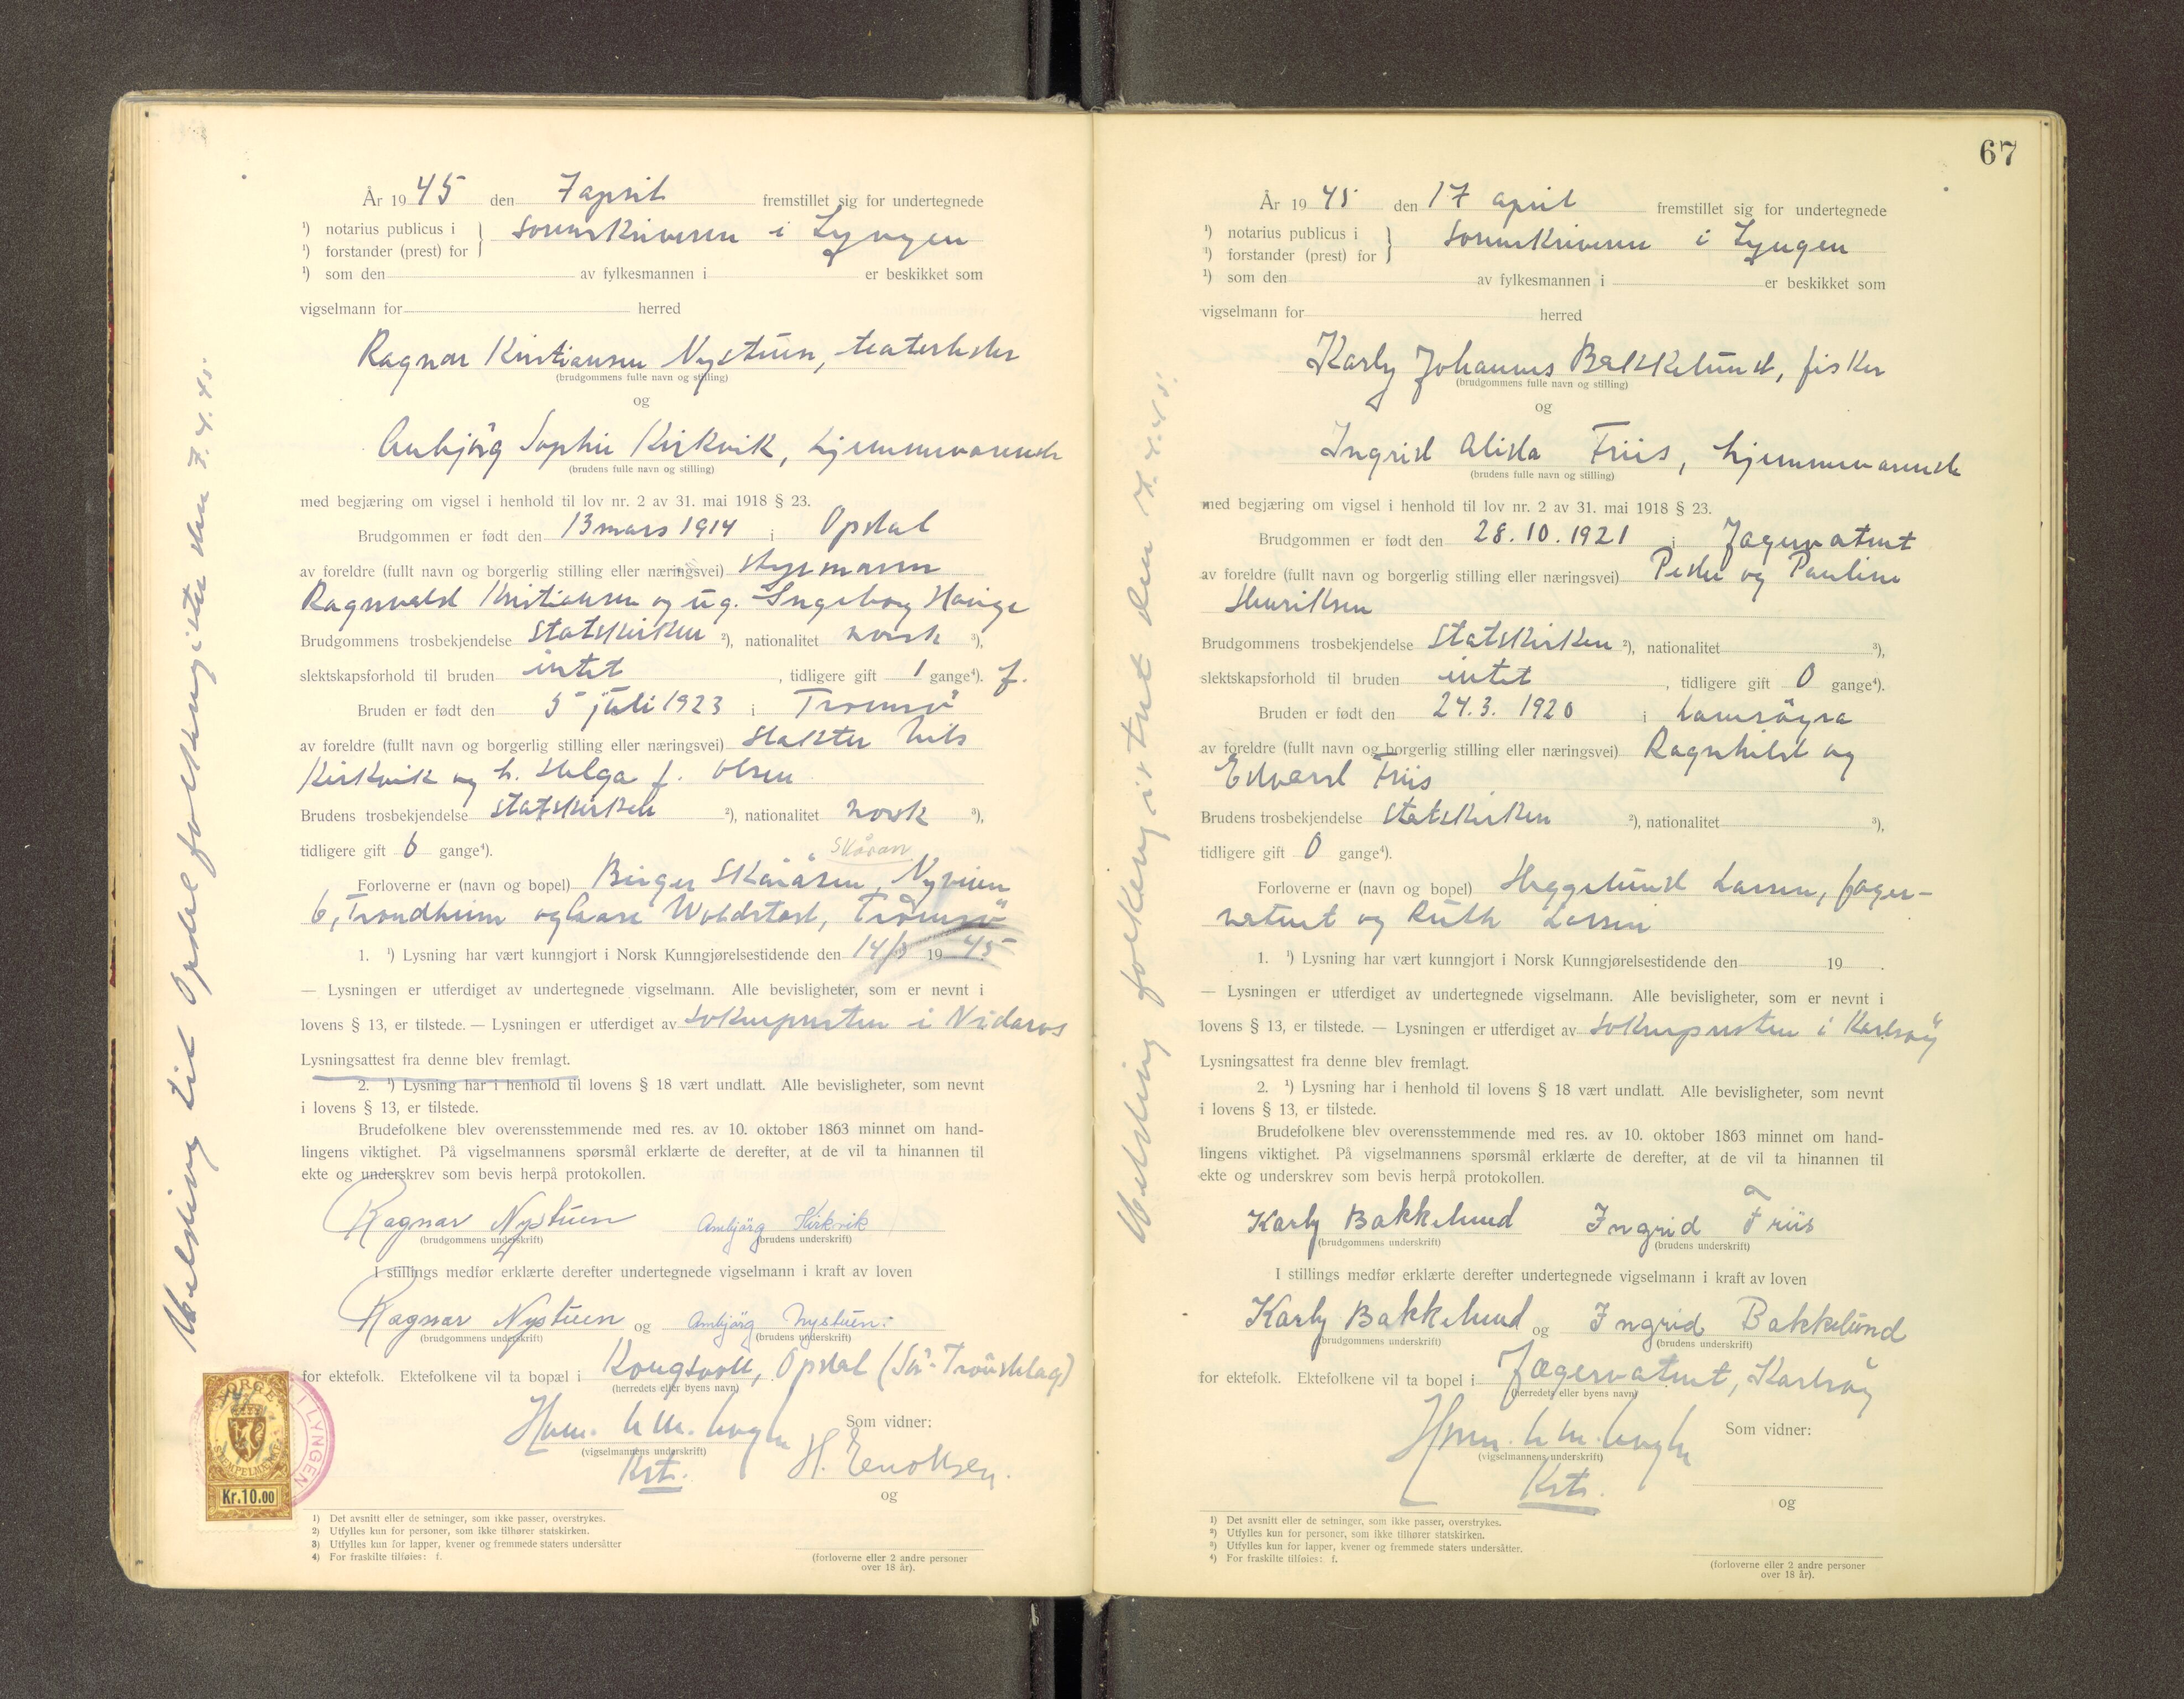 År 1945 den 7 april fremstillet sig for undertegnede
¹) notarius publicus i } sorenskriveren i Lyngen
¹) forstander (prest) for
¹) som den av fylkesmannen i er beskikket som
vigselmann for herred
Ragnar Kristiansen Nystuen, teaterleder
(brudgommens fulle navn og stilling)
og
Anbjörg Sophie Kirkvik, hjemmeværende
(brudens fulle navn og stilling)
med begjæring om vigsel i henhold til lov nr. 2 av 31. mai 1918 § 23.
Brudgommen er født den 13 mars 1914 i Opdal
av foreldre (fullt navn og borgerlig stilling eller næringsvei) styrmann
Ragnvald Kristiansen og ug. Ingeborg Hauge
Brudgommens trosbekjendelse statskirken ²), nationalitet norsk ³),
slektskapsforhold til bruden intet, tidligere gift 1 gange⁴). f.
Bruden er født den 5 juli 1923 i Tromsö
av foreldre (fullt navn og borgerlig stilling eller næringsvei) slakter Nils
Kirkvik og h. Helga f. Olsen
Brudens trosbekjendelse statskirken ²), nationalitet norsk ³),
tidligere gift 0 gange⁴).
Skåran
Forloverne er (navn og bopel) Birger Skåråsen, Nyveien
6, Trondheim og Aase Woldstad, Tromsö
1. ¹) Lysning har vært kunngjort i Norsk Kunngjørelsestidende den 14/3 1945
— Lysningen er utferdiget av undertegnede vigselmann. Alle bevisligheter, som er nevnt i
lovens § 13, er tilstede. — Lysningen er utferdiget av soknepresten i Nidaros
Lysningsattest fra denne blev fremlagt.
2. ¹) Lysning har i henhold til lovens § 18 vært undlatt. Alle bevisligheter, som nevnt
i lovens § 13, er tilstede.
Brudefolkene blev overensstemmende med res. av 10. oktober 1863 minnet om hand-
lingens viktighet. På vigselmannens spørsmål erklærte de derefter, at de vil ta hinannen til
ekte og underskrev som bevis herpå protokollen.
Ragnar Nystuen Anbjörg Kirkvik
(brudgommens underskrift) (brudens underskrift)
I stillings medfør erklærte derefter undertegnede vigselmann i kraft av loven
Ragnar Nystuen og Anbjörg Nystuen.
(brudgommens underskrift) (brudens underskrift)
for ektefolk. Ektefolkene vil ta bopæl i Kongsvoll, Opdal (Sör-Tröndelag)
(herredets eller byens navn)
Som vidner:
(vigselmannens underskrift)
Kst. H. Enoksen.
og
1) Det avsnitt eller de setninger, som ikke passer, overstrykes.
2) Utfylles kun for personer, som ikke tilhører statskirken.
3) Utfylles kun for lapper, kvener og fremmede staters undersåtter
4) For fraskilte tilføies: f.
(forloverne eller 2 andre personer
over 18 år).
Melding til Opdal folkeregister den 7.4.45.
NORGE
STEMPELMERKE
Kr.10.00
LYNGEN
67
År 1945 den 17 april fremstillet sig for undertegnede
¹) notarius publicus i } sorenskriveren i Lyngen
¹) forstander (prest) for
¹) som den av fylkesmannen i er beskikket som
vigselmann for herred
Karly Johannes Bakkelund, fisker
(brudgommens fulle navn og stilling)
og
Ingrid Alida Friis, hjemmeværende
(brudens fulle navn og stilling)
med begjæring om vigsel i henhold til lov nr. 2 av 31. mai 1918 § 23.
Brudgommen er født den 28.10.1921 i Jægervatnet
av foreldre (fullt navn og borgerlig stilling eller næringsvei) Peder og Pauline
Henriksen
Brudgommens trosbekjendelse statskirken ²), nationalitet ³),
slektskapsforhold til bruden intet, tidligere gift 0 gange⁴).
Bruden er født den 24.3. 1920 i
av foreldre (fullt navn og borgerlig stilling eller næringsvei) Ragnhild og
Edvard Friis
Brudens trosbekjendelse statskirken ²), nationalitet ³),
tidligere gift 0 gange⁴).
Forloverne er (navn og bopel) Heggelund Larsen, Jæger-
vatnet og Ruth Larsen
1. ¹) Lysning har vært kunngjort i Norsk Kunngjørelsestidende den 19 .
— Lysningen er utferdiget av undertegnede vigselmann. Alle bevisligheter, som er nevnt i
lovens § 13, er tilstede. — Lysningen er utferdiget av soknepresten i Karlsöy
Lysningsattest fra denne blev fremlagt.
2. ¹) Lysning har i henhold til lovens § 18 vært undlatt. Alle bevisligheter, som nevnt
i lovens § 13, er tilstede.
Brudefolkene blev overensstemmende med res. av 10. oktober 1863 minnet om hand-
lingens viktighet. På vigselmannens spørsmål erklærte de derefter, at de vil ta hinannen til
ekte og underskrev som bevis herpå protokollen.
Karly Bakkelund Ingrid Friis
(brudgommens underskrift) (brudens underskrift)
I stillings medfør erklærte derefter undertegnede vigselmann i kraft av loven
Karly Bakkelund og Ingrid Bakkelund
(brudgommens underskrift) (brudens underskrift)
for ektefolk. Ektefolkene vil ta bopel i Jægervatnet, Karlsöy
(herredets eller byens navn)
Som vidner:
(vigselmannens underskrift)
Kst.
og
1) Det avsnitt eller de setninger, som ikke passer, overstrykes.
2) Utfylles kun for personer, som ikke tilhører statskirken.
3) Utfylles kun for lapper, kvener og fremmede staters undersåtter.
4) For fraskilte tilføies: f.
(forloverne eller 2 andre personer
over 18 år).
Melding folkeregistret den